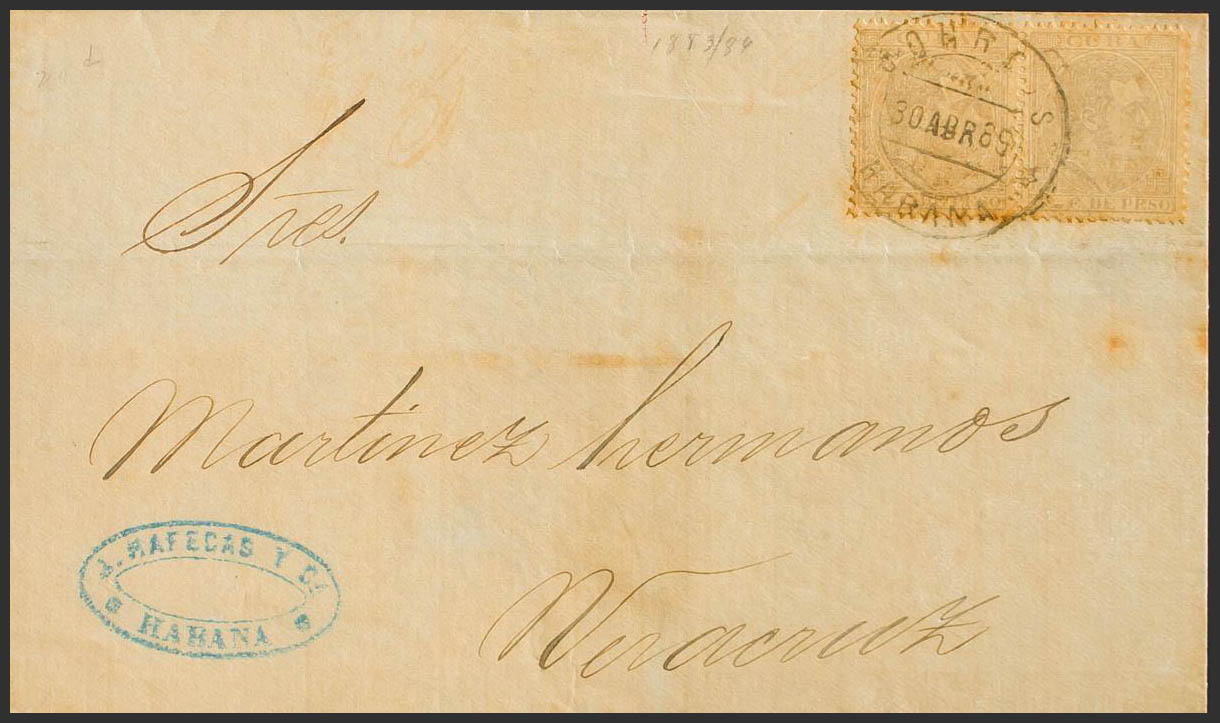 1883/84
CORREOS
30 ABR 89
HABANA
CUBA
C. DE PESO
Sres.
Martinez hermanos
Veracruz
J. RAFECAS Y Cª
HABANA